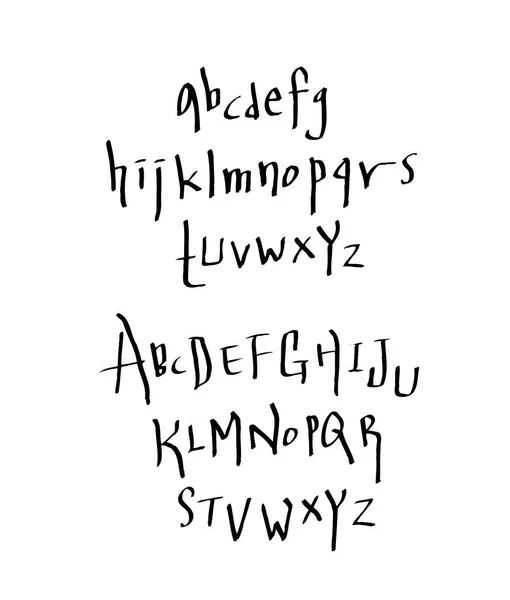 abcdefg
hijklmnopqrs
tuvwxyz
ABCDEFGHIJU
KLMNOPQR
STVWXYZ